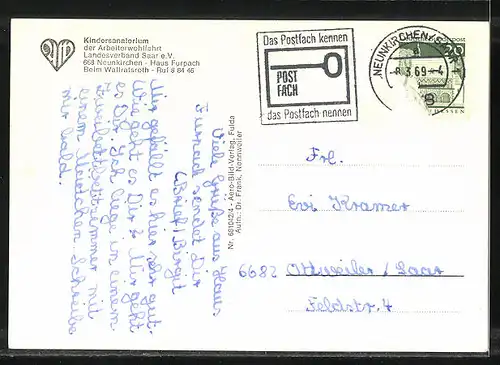 Kindersanatorium
der Arbeiterwohlfahrt
Landesverband Saar e.V.
668 Neunkirchen - Haus Furpach
Beim Wallratsroth - Ruf 8 64 46
Das Postfach kennen
POST
FACH
das Postfach nennen
NEUNKIRCHEN (SAAR)
-8.3.69 - 4
8
20
HESSEN
Viele Grüße aus Haus
Furpach sendet Dir
(Brief) Birgit
Mir gefällt es hier sehr gut.
Wie geht es Dir? Mir geht
es Ich liege in einem
Zweibettzimmer mit
einem Mädchen. Schreibe
mir bald.
Nr. 681042/4 - Aero-Bild-Verlag, Fulda
Aufn.: Dr. Frank, Nannweiler
Frl.
Evi Kramer
6682 Ottweiler/Saar
Feldstr. 4